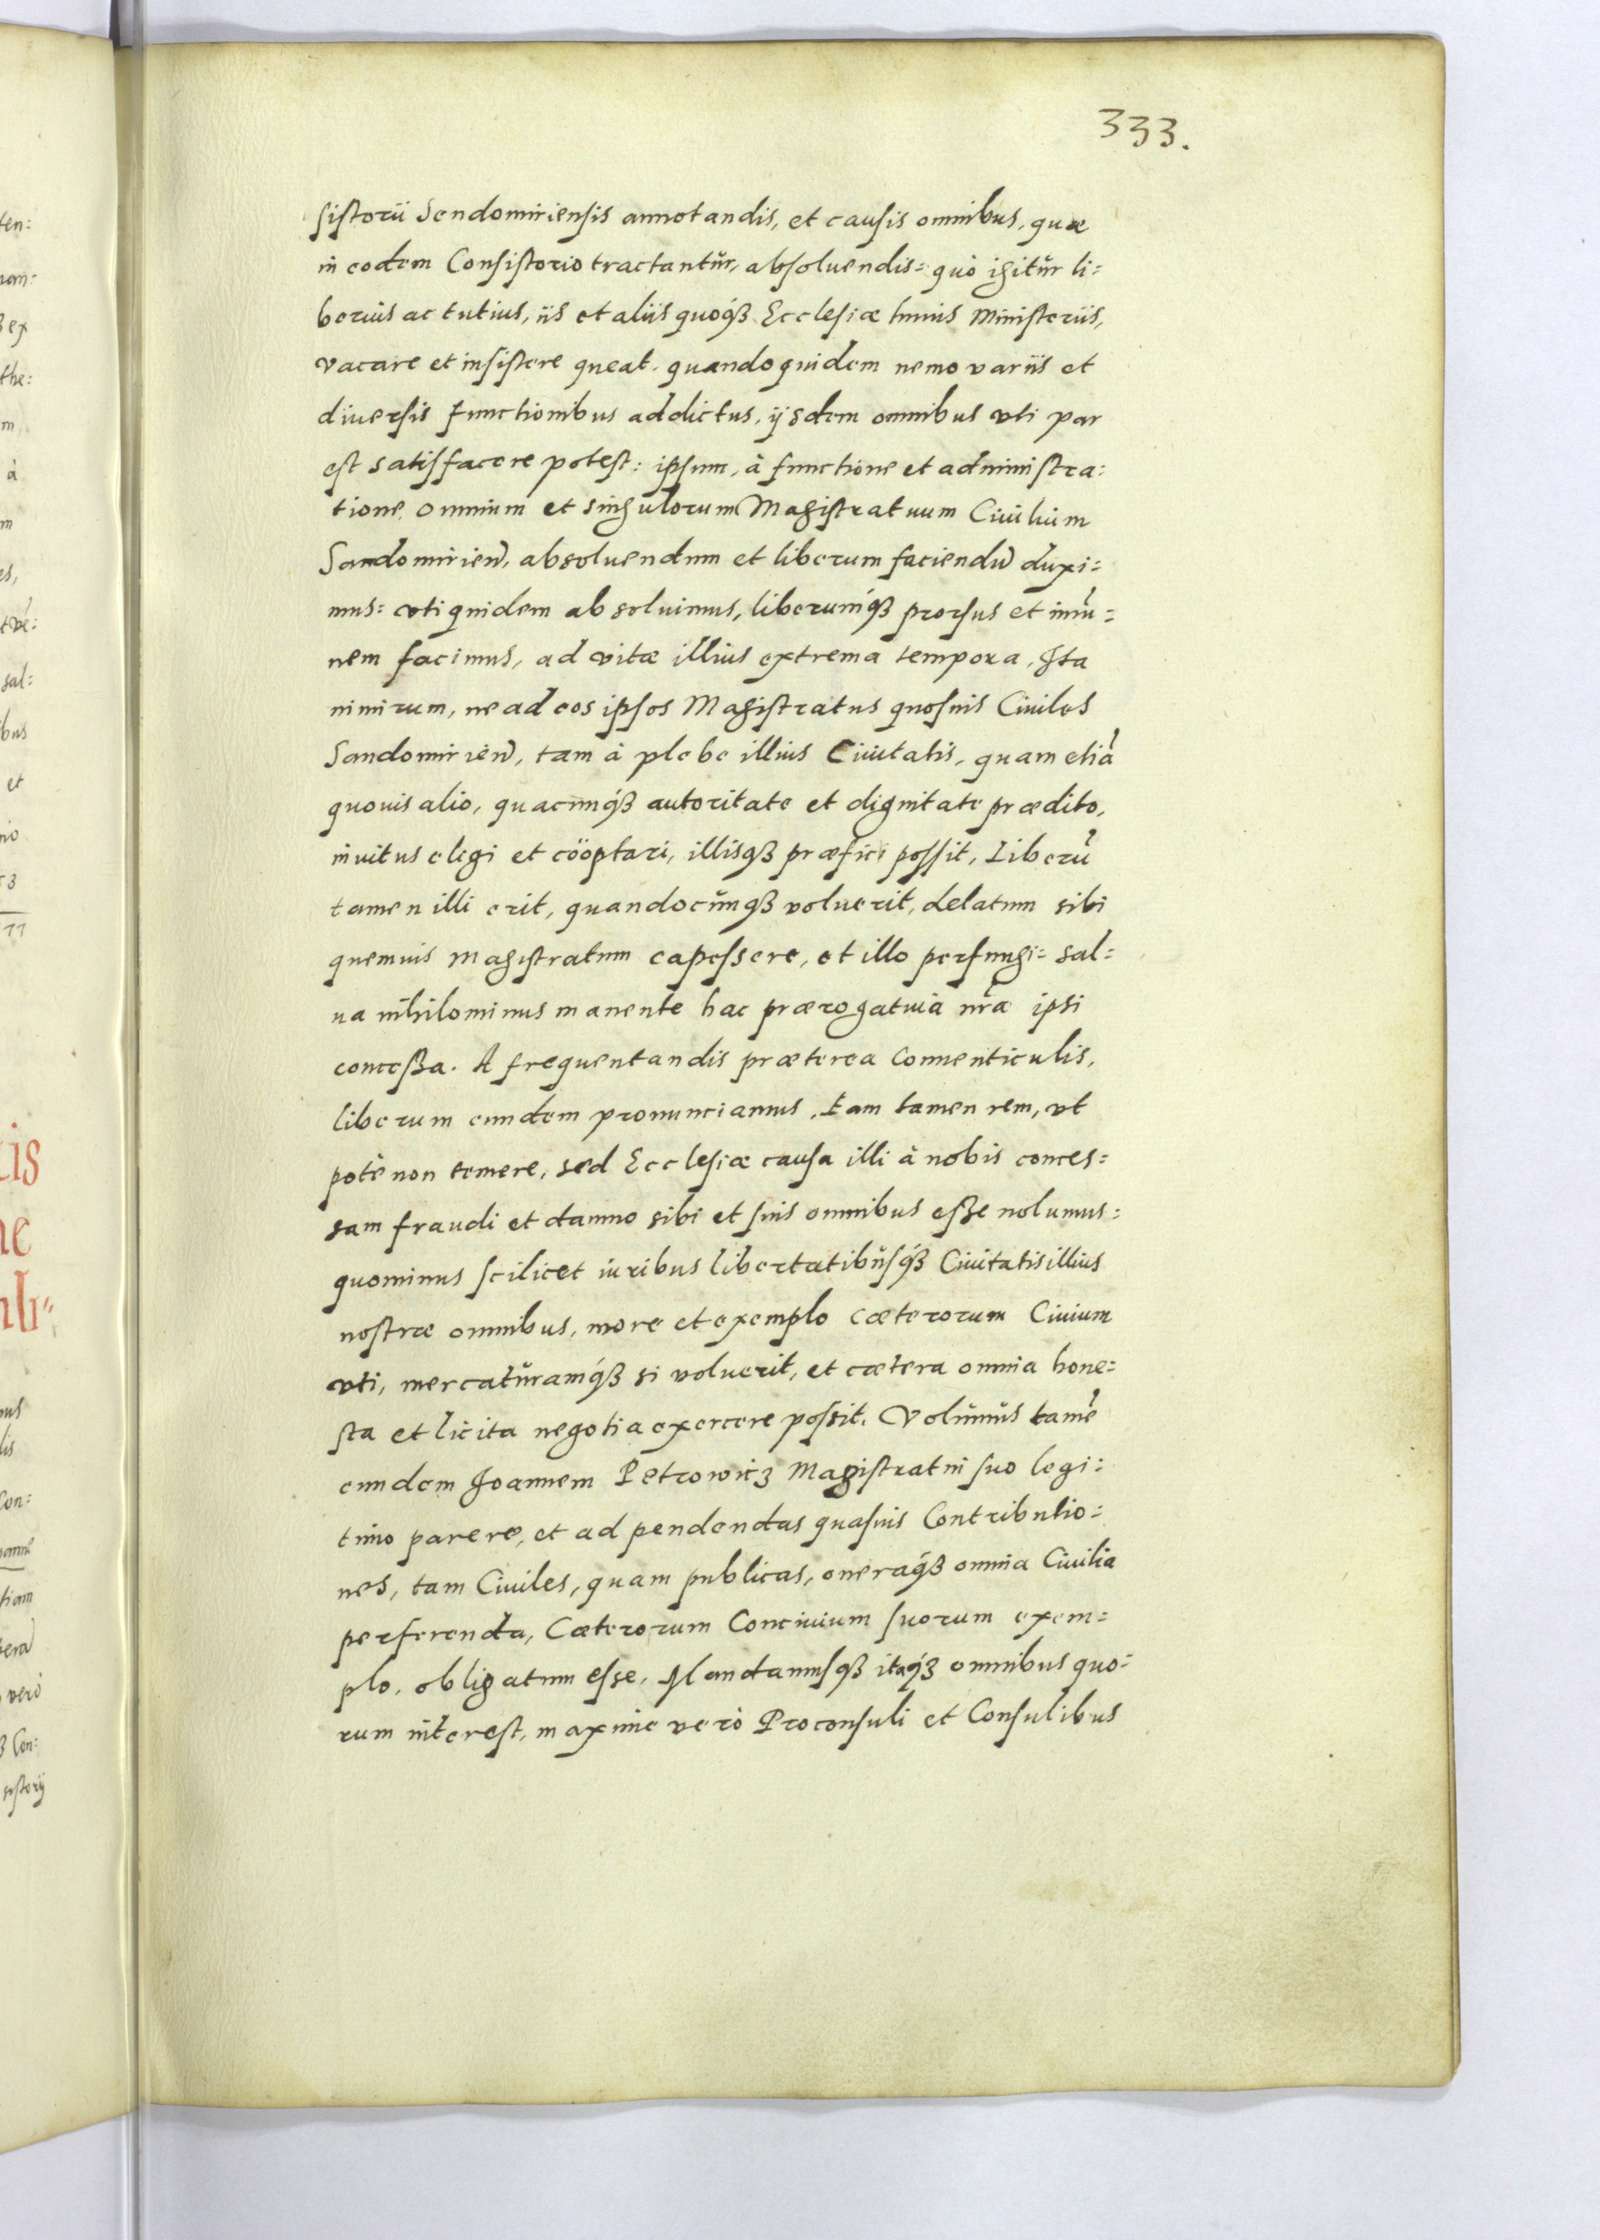 333.
sistorii Sendomiriensis annotandis, et causis omnibus, quæ
in eodem Consistorio tractantur, absoluendis: quò igitur li:
berius ac tutius, iis et aliis quoq́ꝫ Ecclesiæ huius Ministeriis,
vacare et insistere queat. quandoquidem nemo variis et
diuersis functionibus addictus, ijsdem omnibus vti par
est satisfacere potest: ipsum, à functione et administra:
tione omnium et singulorum Magistratuum Ciuilium
Sandomirień, absoluendum et liberum faciendũ duxi:
mus: vti quidem absoluimus, liberumq́ꝫ prorsus et imũ:
nem facimus, ad vitæ illius extrema tempora, Ita
nimirum, ne ad eos ipsos Magistratus quosuis Ciuiles
Sandomirień, tam à plebe illius Ciuitatis, quam etiã
quouis alio, quacunq́ꝫ autoritate et dignitate prædito,
inuitus eligi et cöoptari, illisqꝫ præfici possit, Liberũ
tamen illi erit, quandocunqꝫ voluerit, delatum sibi
quemuis Magistratum capessere, et illo perfungi: sal:
ua nihilominus manente hac prærogatiua nrã ipsi
concessa. A frequentandis præterea Conuenticulis,
liberum eundem pronunciamus. Eam tamen rem, vt
potè non temere, sed Ecclesiæ causa illi à nobis conces:
sam fraudi et damno sibi et suis omnibus esse nolumus:
quominus scilicet iuribus libertatibusq́ꝫ Ciuitatis illius
nostræ omnibus, more et exemplo cæterorum Ciuium
vti, mercaturamq́ꝫ si voluerit, et cætera omnia hone:
sta et licita negotia exercere possit. Volumus tamẽ
eundem Joannem Petrowicz Magistratui suo legi:
timo parere, et ad pendendas quasuis Contributio:
nes, tam Ciuiles, quam publicas, oneraq́ꝫ omnia Ciuilia
perferenda, Cæterorum Conciuium suorum exem:
plo, obligatum esse, Mandamusqꝫ itaq́ꝫ omnibus quo:
rum interest, maxime verò Proconsuli et Consulibus